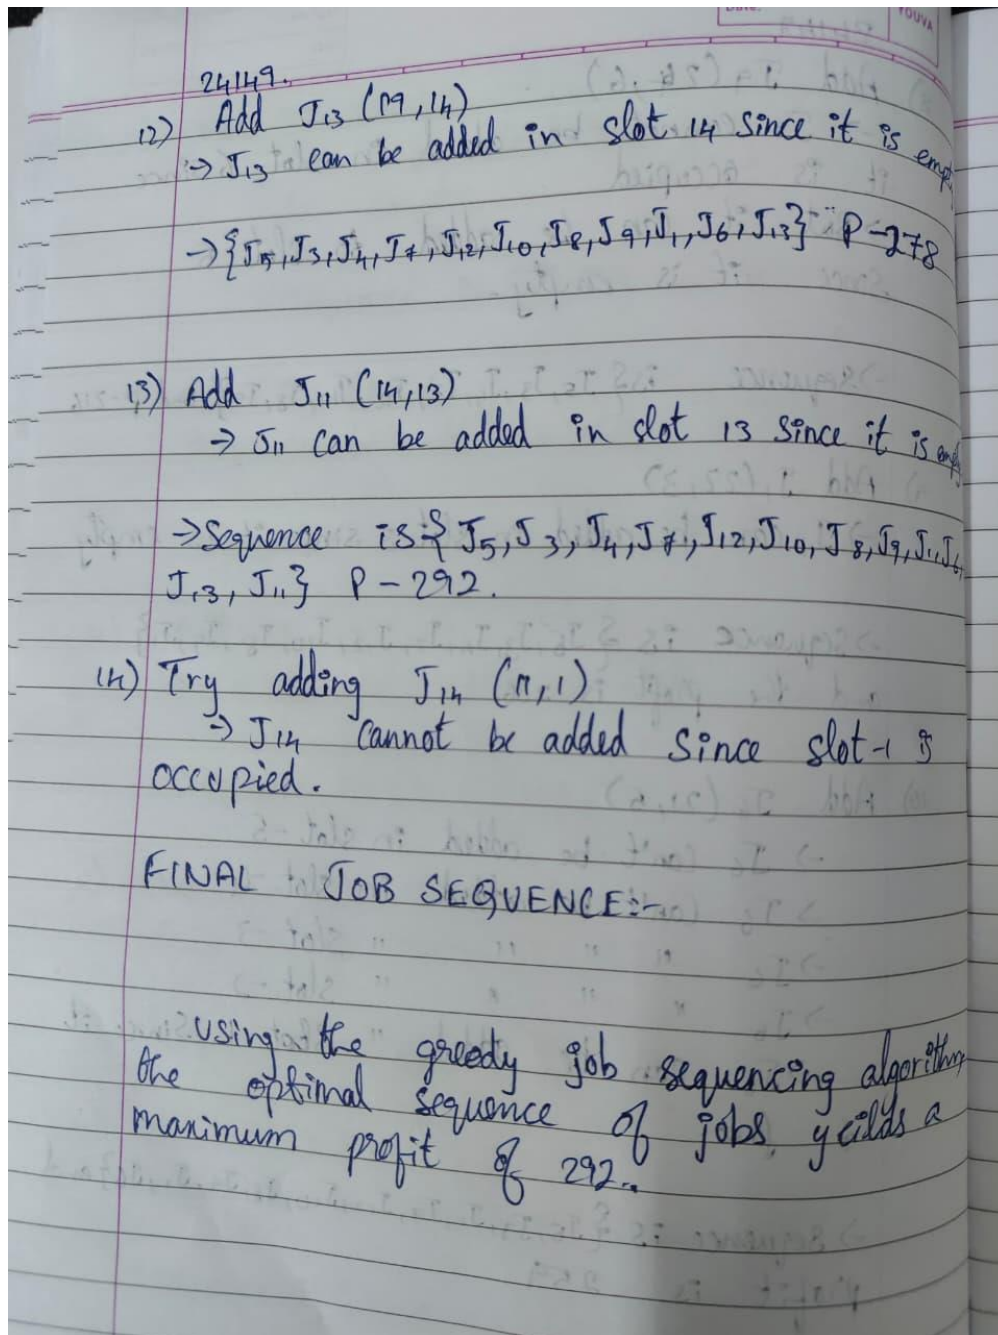 YOUVA
24149.
12) Add J13 (19,14)
→ J13 can be added in slot 14 since it is
→ {J5, J3, J4, J7, J12, J10, J8, J9, J1, J6, J13} P-278
13) Add J11 (14,13)
→ J11 can be added in slot 13 since it is
→ Sequence is:{ J5, J3, J4, J7, J12, J10, J8, J9, J1, J6,
J13, J11} P-292.
14) Try adding J14 (11,1)
→ J14 cannot be added since slot-1 is
occupied.
FINAL JOB SEQUENCE:-
using the greedy job sequencing algorithm
the optimal sequence of jobs yeilds a
maximum profit of 292..